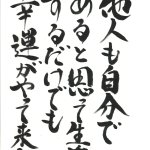 他人も自分で
あると思って生
するだけでも
幸運がやって来